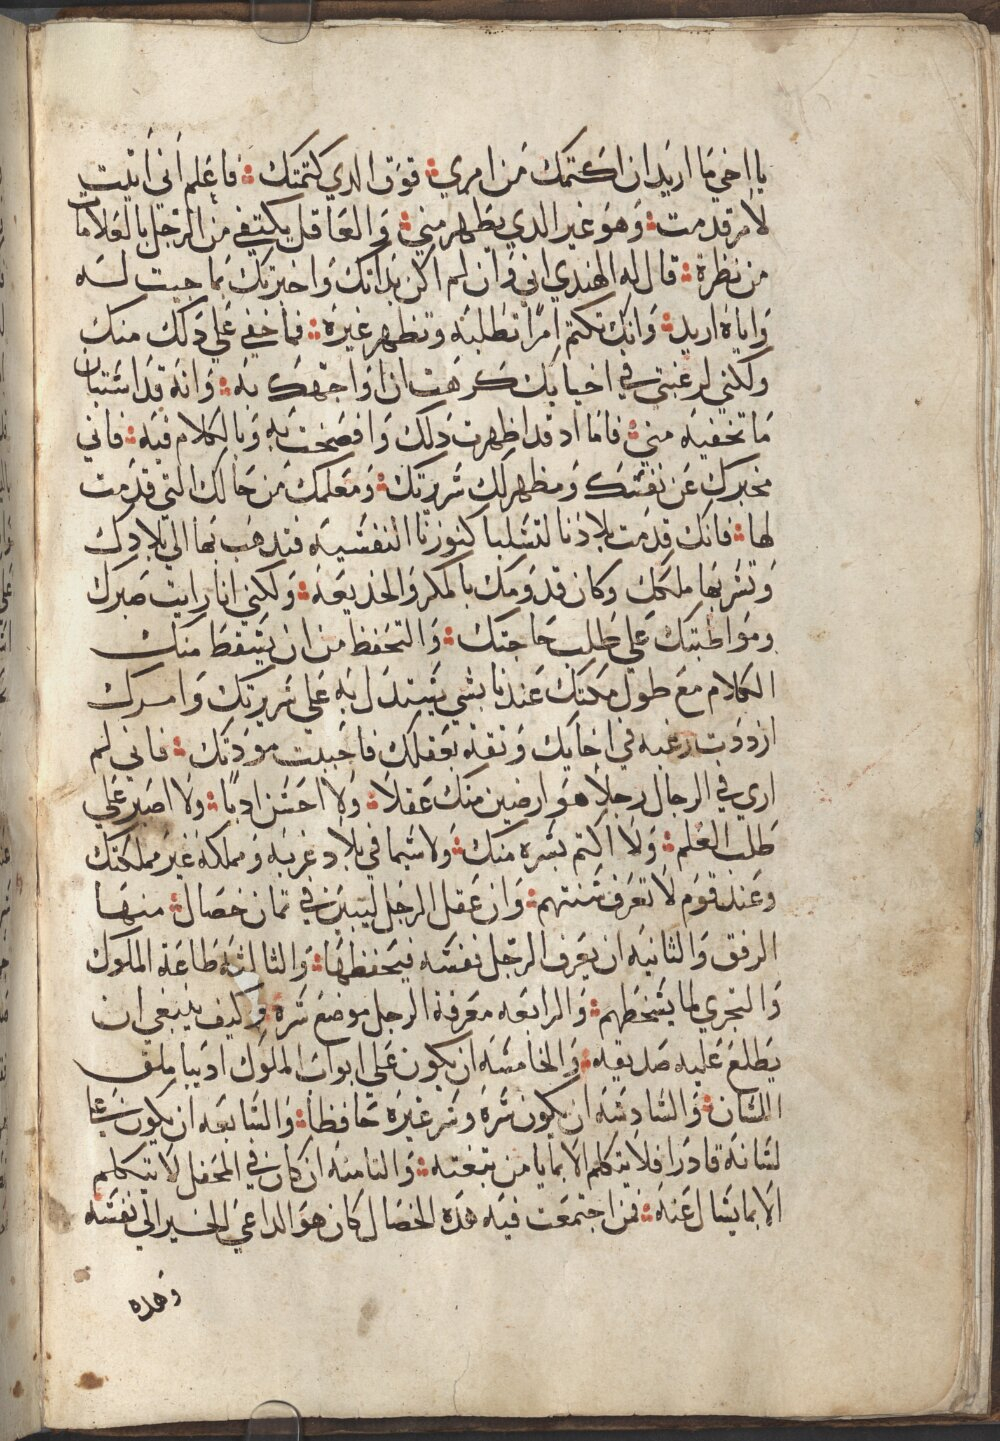 يا اخي ما اريد ان اكتمك من امري فوق الدي كتمتك فاعلم اني اتيت
لامر قدمت وهو غير الدي يظهر مني والعاقل يكتفي من الرجل بالعلامات
من نظرة قال له الهندي اني وان لم اكن بداتك واخبرتك بما جيت له
واياه اريد وانك تكتم امرا تطلبه وتظهر غيره فما خفي علي دلك منك
ولكني لرغبتي في اخيايك كرهت ان اواجهك به وانه قد استبان
ما تخفيه مني فاما اد قد اظهرت دلك وافصحت به وبالكلام فيه فاني
مخبرك عن نفسك ومظهر لك سريرتك ومعلمك من حالك التي قدمت
لها فانك قدمت بلادنا لتسلبا كنوزنا النفسيه فتدهب بها الي بلادك
وتسر بها ملكك وكان قدومك بالمكر والخديعه ولكني انا رايت صبرك
ومواظبتك علي طلب حاجتك والتحفظ من ان يسقط منك
الكلام مع طول مكتك عندنا بشي يستدل به علي سريرتك وامرك
ازددت رغبه في اخايك وتقة بعقلك فاحببت مودتك فاني لم
اري في الرجال رجلا هو ارصين منك عقلا ولا احسن ادبا ولا اصبر علي
طلب العلم ولا اكتم بسره منك ولا سيما في بلاد غربه ومملكه غير مملكتك
وعند قوم لا تعرف سنتهم وان عقل الرجل ليتبين في تمان خصال منها
الرفق والثانيه ان يعرف الرجل نفسه فيحفظها والثالثه طاعة الملوك
والتجري لما يسخطهم والرابعه معرفة الرجل موضع سره وكيف ينبغي ان
يطلع عليه صديقه والخامسه ان يكون علي ابواب الملوك اديبا ملق
اللسان والسادسه ان يكون سره وسر غيره حافظا والسابعه ان يكون علي
لسانه قادرا فلا يتكلم الا بما يامن تبعته والتامنه ان كان في المحفل لا يتكلم
الا بما يسال عنه فمن اجتمعت فيه هده الخصال كان هو الداعي الخير الي نفسه
وهده